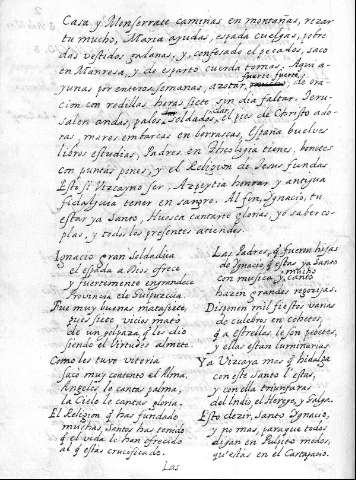 Casa y Monserrate caminas en montañas, rezar
tu mucho, Maria ayudas, espada cuelgas, pobre
das vestidos galanas, y confesado el pecados, saco
en Manresa, y de esparto cuerda tomas. Aqui a-
yunas por enteras semanas, azotar, fuerte fuerte, de ora-
cion con rodillas horas siete sin dia faltar. Jeru-
salen andas, palos soldados, el pies de Christo ado-
ras, mares embarcas en borrascas, España buelves
libros estudias, Padres en Theologia tienes, bonetes
con puntas pones, y el Religion de Jesus fundas
Esto si Vizcayno ser, Azpeytia honrar y antigua
fidalguia tener en sangre. Al fin, Ignacio, tu
estar ya Santo, Huesca cantarte glorias, yo saber co-
plas, y todos los presentes atiendes.
Ignacio gran Soldadua
el espada a Dios ofrece
y fuertemente engrandece
Provincia de Guipuzcua
Fue muy buenas matasiete,
pues siete vicios mató
de un golpaza, q les dio
siendo el Virtudes almete.
Como les tuvo vitoria
sacó muy contento el Alma,
Angeles le cantas palma,
la Cielo le cantas gloria.
El Religion q has fundado
muchas Santos has tenido
q el vida le han ofrecido
al q estas crucificado.
Las Padres, q fueron hijas
de Ignacio, q estas ya Santo
con musica, y mucho canto
hazen grandes regozijas.
Disponen mil fiestas varias
de culebro en cohetes,
q a estrellas le son
y ellas estan luminarias
Ya Vizcaya mas q hidalga
con este Santo l'estas,
y con ella triunfaras
del Indio, el Herege, y Galga.
Esto dezir, Santo Ignacio,
y no mas, paraque todos
digan en Pulpito modos,
qu'estas en el Cartapacio.
Las